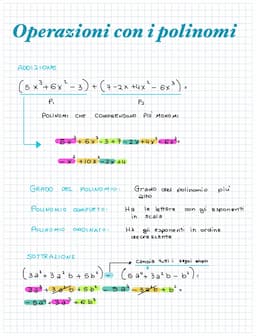 Operazioni con i polinomi
ADDIZIONE
(5x³+6x²-3)+(7-2x+4x²-6x³)=
P₁ P₂
POLINOMI CHE COMPRENDONO PIÙ MONOMI
5x³+6x²-3+7-2x+4x²-6x³=
-x³+10x²-2x+4
GRADO DEL POLINOMIO: Grado del polinomio più alto
POLINOMIO COMPLETO: Ha le lettere con gli esponenti in scala
POLINOMIO ORDINATO: Ha gli esponenti in ordine decrescente
SOTTRAZIONE
Cambia tutti i segni dopo
(3a³+3a²b+5b³)-(8a³+3a²b-b³)=